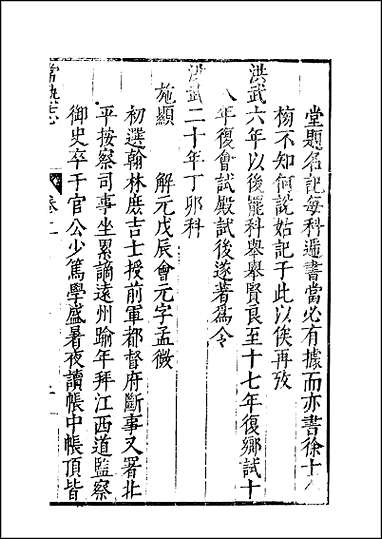 堂題名記每科遞書當必有據而亦書徐士
栯不知何說姑記于此以俟再攷
洪武六年以後罷科舉舉賢良至十七年復鄉試十
八年復會試殿試後遂著爲令
洪武二十年丁卯科
施顯　解元戊辰會元字孟微
初選翰林庶吉士授前軍都督府斷事又署北
平按察司事坐累謫遠州踰年拜江西道監察
御史卒于官公少篤學盛暑夜讀帳中帳頂皆
常熟